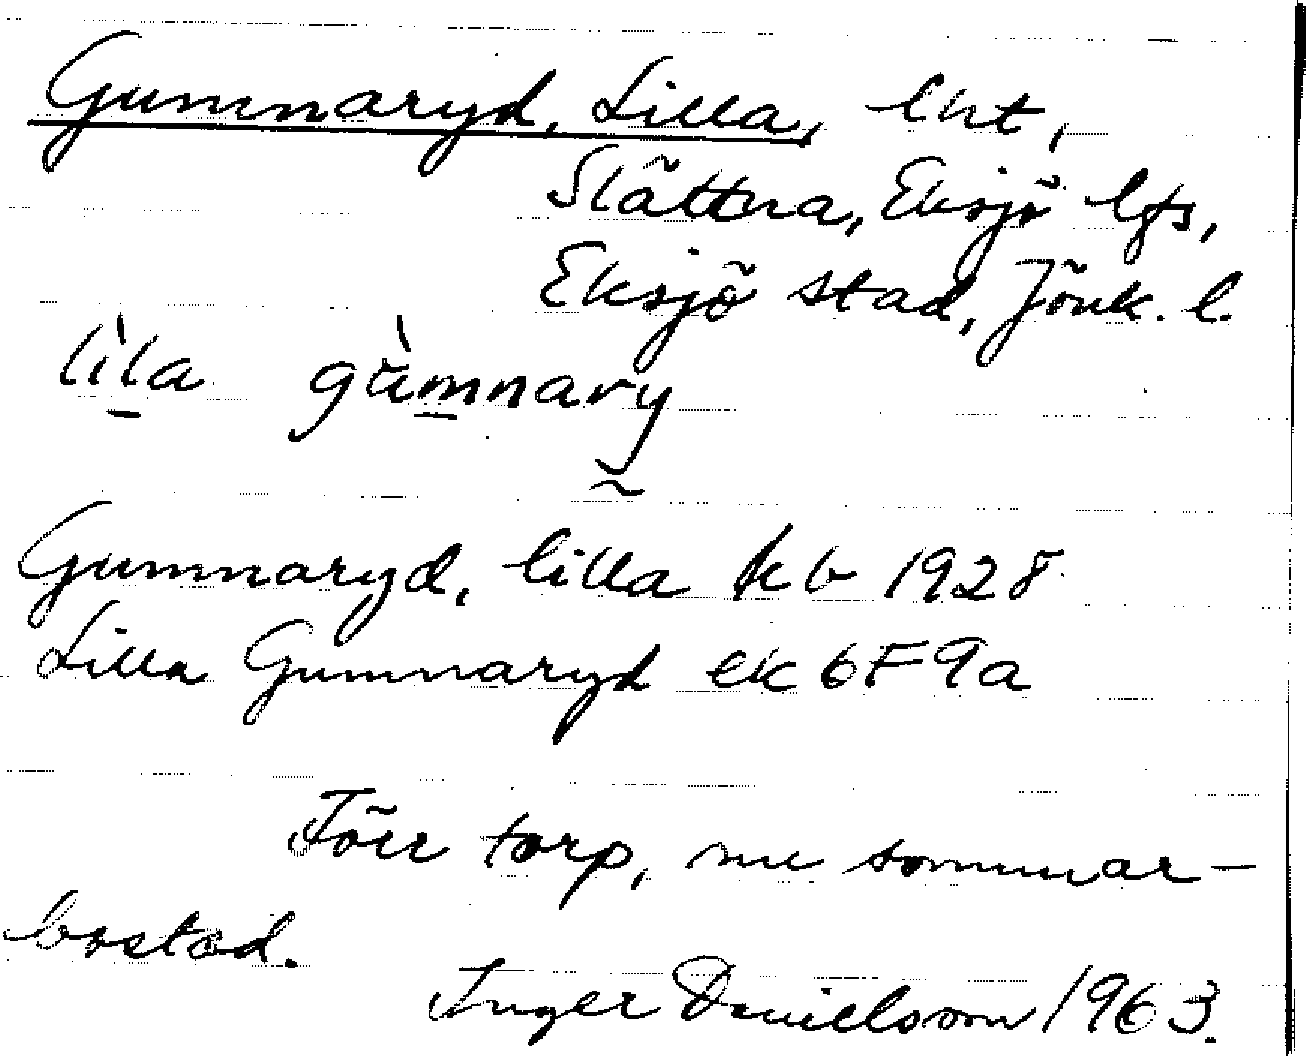 Gummaryd, Lilla, lht,
Slättna, Eksjö lfs,
Eksjö stad, Jönk. l.
lìla gùmnary
Gummaryd, lilla kb 1928
Lilla Gummaryd ek 6F9a
Förr torp, nu sommar-
bostad.
Inger Danielsson 1963.